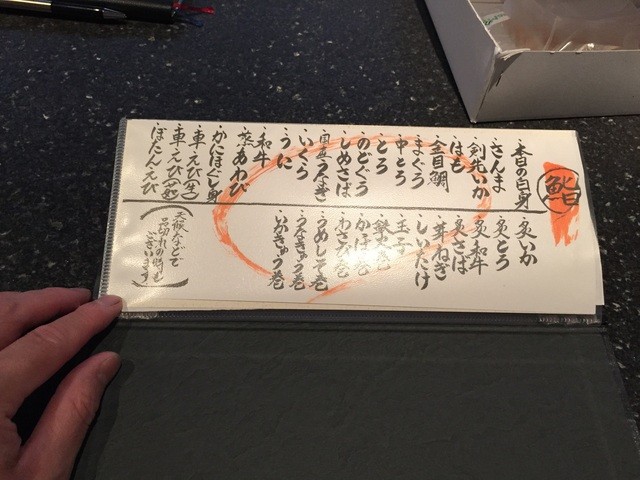 鮨
本日の白身
さんま
剣先いか
はも
金目鯛
まぐろ
中とろ
とろ
のどぐろ
しめさば
国産うなぎ
いくら
うに
和牛
蒸あわび
かにほぐし身
車えび(生)
車えび(ゆで)
ぼたんえび
炙いか
炙とろ
炙和牛
炙さば
芽ねぎ
しいたけ
玉子
鉄火巻
かっぱ巻
わさび巻
うめしそ巻
うなきゅう巻
いかきゅう巻
(天候などで
品切れの時も
ございます)